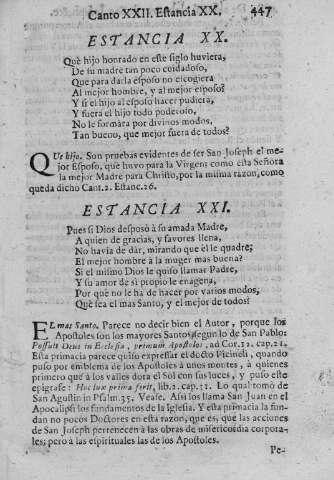 Canto XXII. Estancia XX. 447
ESTANCIA XX.
Què hijo honrado en este siglo huviera,
De su madre tan poco cuidadoso,
Que para darla esposo no escogiera
Al mejor hombre, y al mejor esposo?
Y si el hijo al esposo hacer pudiera,
Y fuera el hijo todo poderoso,
No le formàra por divinos modos,
Tan bueno, que mejor fuera de todos?
QUe hijo. Son pruebas evidentes de ser San Joseph el me-
jor Esposo, que huvo para la Virgen: como esta Señora
la mejor Madre para Christo, por la misma razon, como
queda dicho Cant.2. Estanc.26.
ESTANCIA XXI.
Pues si Dios desposò à su amada Madre,
A quien de gracias, y favores llena,
No havia de dàr, mirando que èl le quadre;
El mejor hombre à la muger mas buena?
Si el mismo Dios le quiso llamar Padre,
Y su amor de sì proprio le enagena,
Por què no le ha de hacer por varios modos,
Que sea el mas Santo, y el mejor de todos?
EL mas Santo. Parece no decir bien el Autor, porque los
Apostoles son los mayores Santos, segun lo de San Pablo:
Possuit Deus in Ecclesia, primum Apostolos, ad Cor.12. cap.21.
Esta primacia parece quiso expressar el docto Picineli, quando
puso por emblema de los Apostoles à unos montes, à quienes
primero que à los valles dora el Sol con sus luces, y puso este
epigrafe: Hos lux prima ferit, lib.2. cap.31. Lo qual tomò de
San Agustin in Psalm.35. Vease. Assi los llama San Juan en el
Apocalipsi los fundamentos de la Iglesia. Y esta primacia la fun-
dan no pocos Doctores en esta razon, que es, que las acciones
de San Joseph pertenecen à las obras de misericordia corpora-
les; pero à las espirituales las de los Apostoles.
Pe-